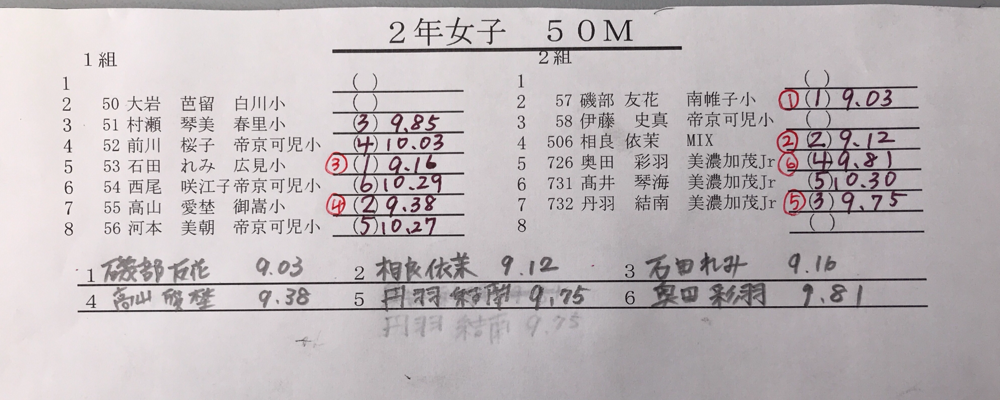 ２年女子　５０Ｍ
１組
1 ( )
2 50 大岩　芭留　白川小 ( )
3 51 村瀬　琴美　春里小 (3) 9.85
4 52 前川　桜子　帝京可児小 (4) 10.03
5 53 石田　れみ　広見小 ③ (1) 9.16
6 54 西尾　咲江子 帝京可児小 (6) 10.29
7 55 高山　愛埜　御嵩小 ④ (2) 9.38
8 56 河本　美朝　帝京可児小 (5) 10.27
２組
1 ( )
2 57 磯部 友花　南帷子小 ① (1) 9.03
3 58 伊藤　史真　帝京可児小 ( )
4 506 相良 依茉　MIX ② (2) 9.12
5 726 奥田　彩羽　美濃加茂Jr ⑥ (4) 9.81
6 731 髙井　琴海　美濃加茂Jr (5) 10.30
7 732 丹羽　結南　美濃加茂Jr ⑤ (3) 9.75
8 ( )
1 磯部友花 9.03 2 相良依茉 9.12 3 石田れみ 9.16
4 高山愛埜 9.38 5 丹羽結南 9.75 6 奥田彩羽 9.81
丹羽 結南 9.75